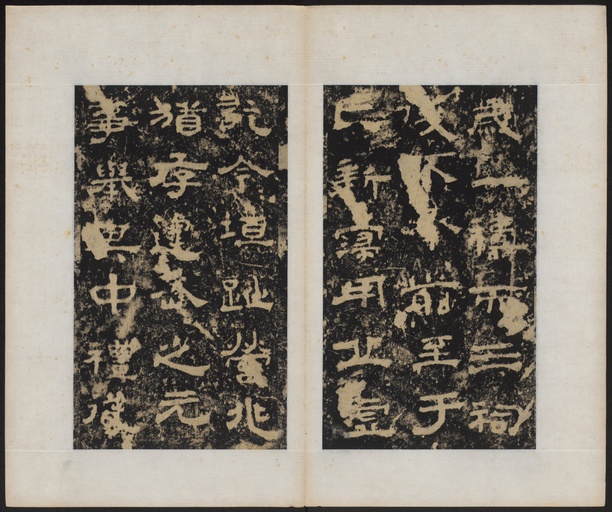 歲一禱而三祠
後不前至于
亡新寖用丘虛
訖今垣趾營兆
猶存建武之元
事舉其中禮從